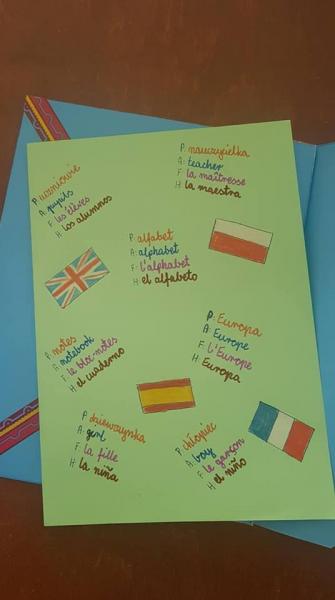 P: uczniowie
A: pupils
F: les élèves
H: los alumnos
P: nauczycielka
A: teacher
F: la maîtresse
H: la maestra
P: alfabet
A: alphabet
F: l'alphabet
H: el alfabeto
P: notes
A: notebook
F: le bloc-notes
H: el cuaderno
P: Europa
A: Europe
F: l'Europe
H: Europa
P: dziewczynka
A: girl
F: la fille
H: la niña
P: chłopiec
A: boy
F: le garçon
H: el niño